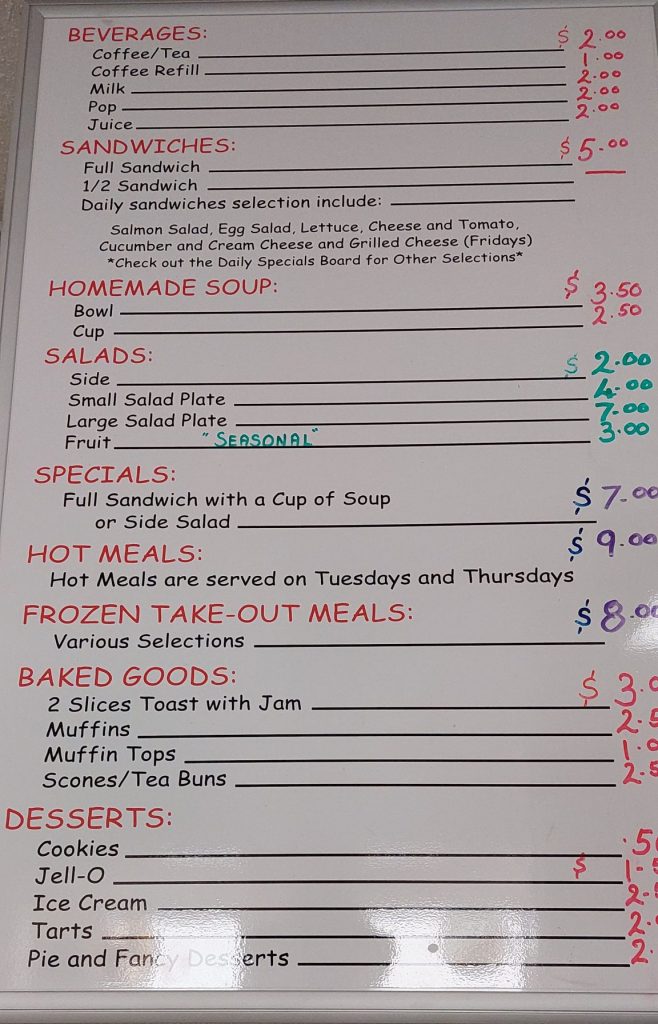 BEVERAGES: $ 2.00
Coffee/Tea 1.00
Coffee Refill 2.00
Milk 2.00
Pop 2.00
Juice
SANDWICHES: $ 5.00
Full Sandwich —
1/2 Sandwich
Daily sandwiches selection include:
Salmon Salad, Egg Salad, Lettuce, Cheese and Tomato,
Cucumber and Cream Cheese and Grilled Cheese (Fridays)
*Check out the Daily Specials Board for Other Selections*
HOMEMADE SOUP: $ 3.50
Bowl 2.50
Cup
SALADS: $ 2.00
Side 4.00
Small Salad Plate 7.00
Large Salad Plate 3.00
Fruit "SEASONAL"
SPECIALS:
Full Sandwich with a Cup of Soup $ 7.00
or Side Salad
HOT MEALS: $ 9.00
Hot Meals are served on Tuesdays and Thursdays
FROZEN TAKE-OUT MEALS: $ 8.00
Various Selections
BAKED GOODS: $ 3.0
2 Slices Toast with Jam 2.5
Muffins 1.0
Muffin Tops 2.5
Scones/Tea Buns
DESSERTS:
Cookies .5
Jell-O $ 1.5
Ice Cream 2.5
Tarts 2.
Pie and Fancy Desserts 2.